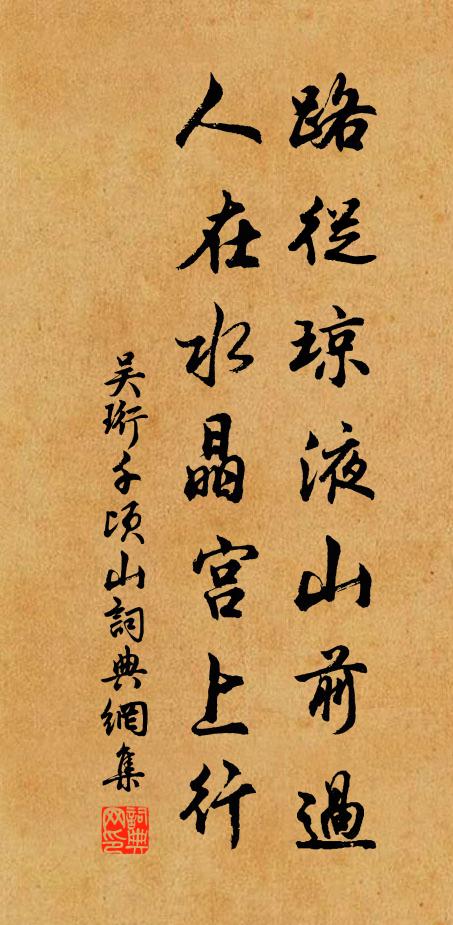 路從琼液山前過
人在水晶宫上行
吴珩千頃山詞典網集
詞典网印